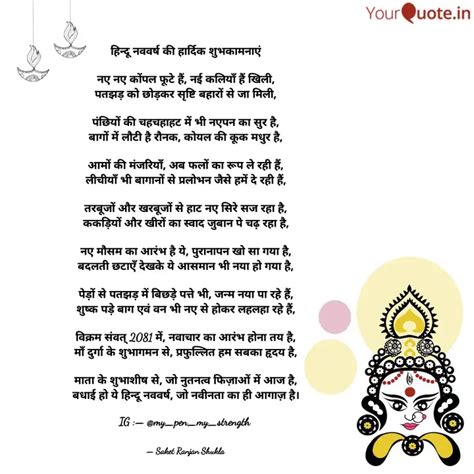 YourQuote.in
हिन्दू नववर्ष की हार्दिक शुभकामनाएं
नए नए कोंपल फूटे हैं, नई कलियाँ हैं खिली,
पतझड़ को छोड़कर सृष्टि बहारों से जा मिली,
पंछियों की चहचहाहट में भी नएपन का सुर है,
बागों में लौटी है रौनक, कोयल की कूक मधुर है,
आमों की मंजरियाँ, अब फलों का रूप ले रही हैं,
लीचीयाँ भी बागानों से प्रलोभन जैसे हमें दे रही हैं,
तरबूजों और खरबूजों से हाट नए सिरे सज रहा है,
ककड़ियों और खीरों का स्वाद जुबान पे चढ़ रहा है,
नए मौसम का आरंभ है ये, पुरानापन खो सा गया है,
बदलती छटाएँ देखके ये आसमान भी नया हो गया है,
पेड़ों से पतझड़ में बिछड़े पत्ते भी, जन्म नया पा रहे हैं,
शुष्क पड़े बाग एवं वन भी नए से होकर लहलहा रहे हैं,
विक्रम संवत् 2081 में, नवाचार का आरंभ होना तय है,
माँ दुर्गा के शुभागमन से, प्रफुल्लित हम सबका हृदय है,
माता के शुभाशीष से, जो नुतनत्व फिज़ाओं में आज है,
बधाई हो ये हिन्दू नववर्ष, जो नवीनता का ही आगाज़ है।
IG :— @my_pen_my_strength
— Saket Ranjan Shukla